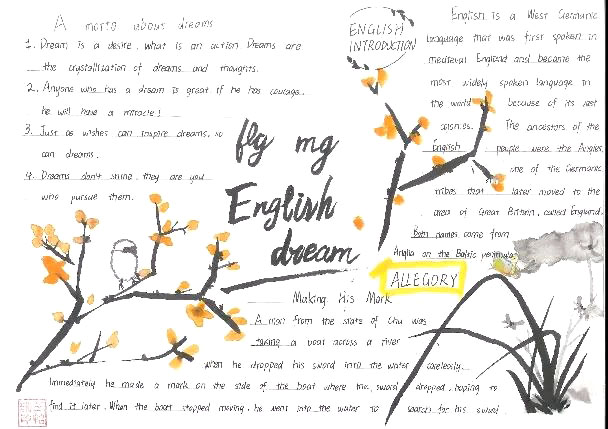 A morto about dreams
1. Dream is a desire. what is an action Dreams are
the crystallization of dreams and thoughts.
2. Anyone who has a dream is great if he has courage.
he will have a miracle!
3. Just as wishes can inspire dreams, so
can dreams.
4. Dreams don't shine, they are you
who pursue them.
fly my
English
dream
ENGLISH
INTRODUCTION
English is a West Germanic
language that was first spoken in
medieval England and became the
most widely spoken language in
the world because of its vast
The ancestors of the
English people were the Angles,
one of the Germanic
tribes that later moved to the
area of Great Britain, called England.
Both names came from
Anglia on the Baltic peninsula
ALLEGORY
Making His Mark
A man from the state of Chu was
taking a boat across a river
when he dropped his sword into the water carelessly.
Immediately he made a mark on the side of the boat where the sword dropped, hoping to
find it later. When the boat stopped moving, he went into the water to search for his sword